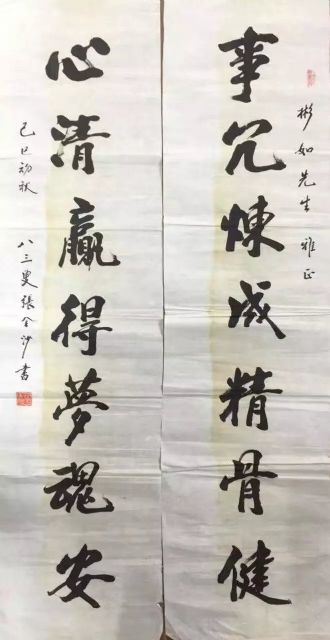 彬如先生雅正
事冗煉成精骨健
心清贏得夢魂安
己巳初秋
八三叟張全沙書